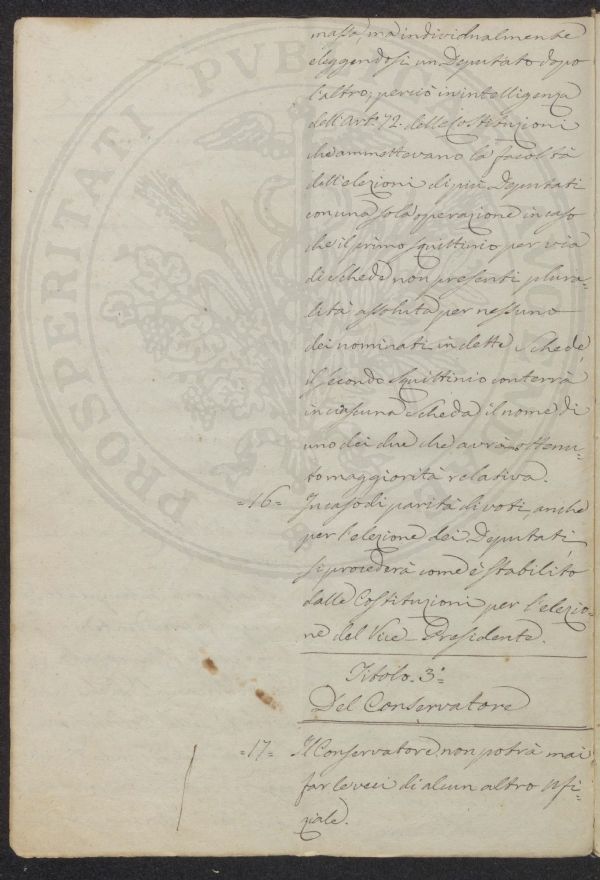 massa, ma individualmente
eleggendosi un Deputato dopo
l'altro; perciò in intelligenza
dell'Art.° 72. delle Costituzioni
che ammettevano la facoltà
dell'elezioni di più Deputati
con una sola operazione in caso
che il primo squittinio per via
di schede non presenti plura-
lità assoluta per nessuno
dei nominati in dette schede,
il secondo squittinio conterrà
in ciascuna scheda il nome di
uno dei due che avrà ottenu-
to maggiorità relativa.
=16= In caso di parità di voti, anche
per l'elezione dei Deputati,
si procederà come è stabilito
dalle Costituzioni per l'elezio-
ne del Vice-Presidente.
Titolo. 3°=
Del Conservatore
=17= Il Conservatore non potrà mai
far le veci di alcun altro Ufi-
ziale.
PROSPERITATI PUBLICAE